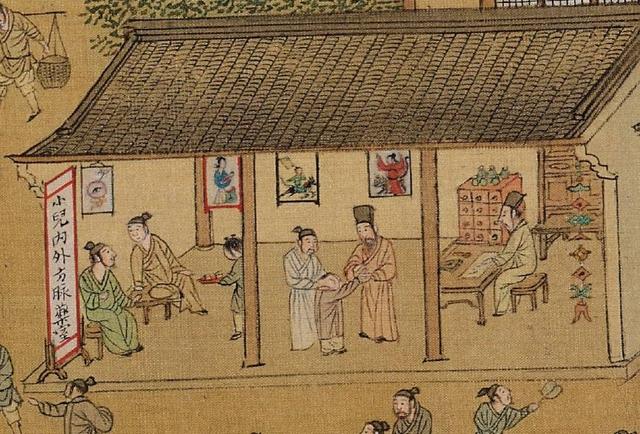 小兒内外方脉藥室